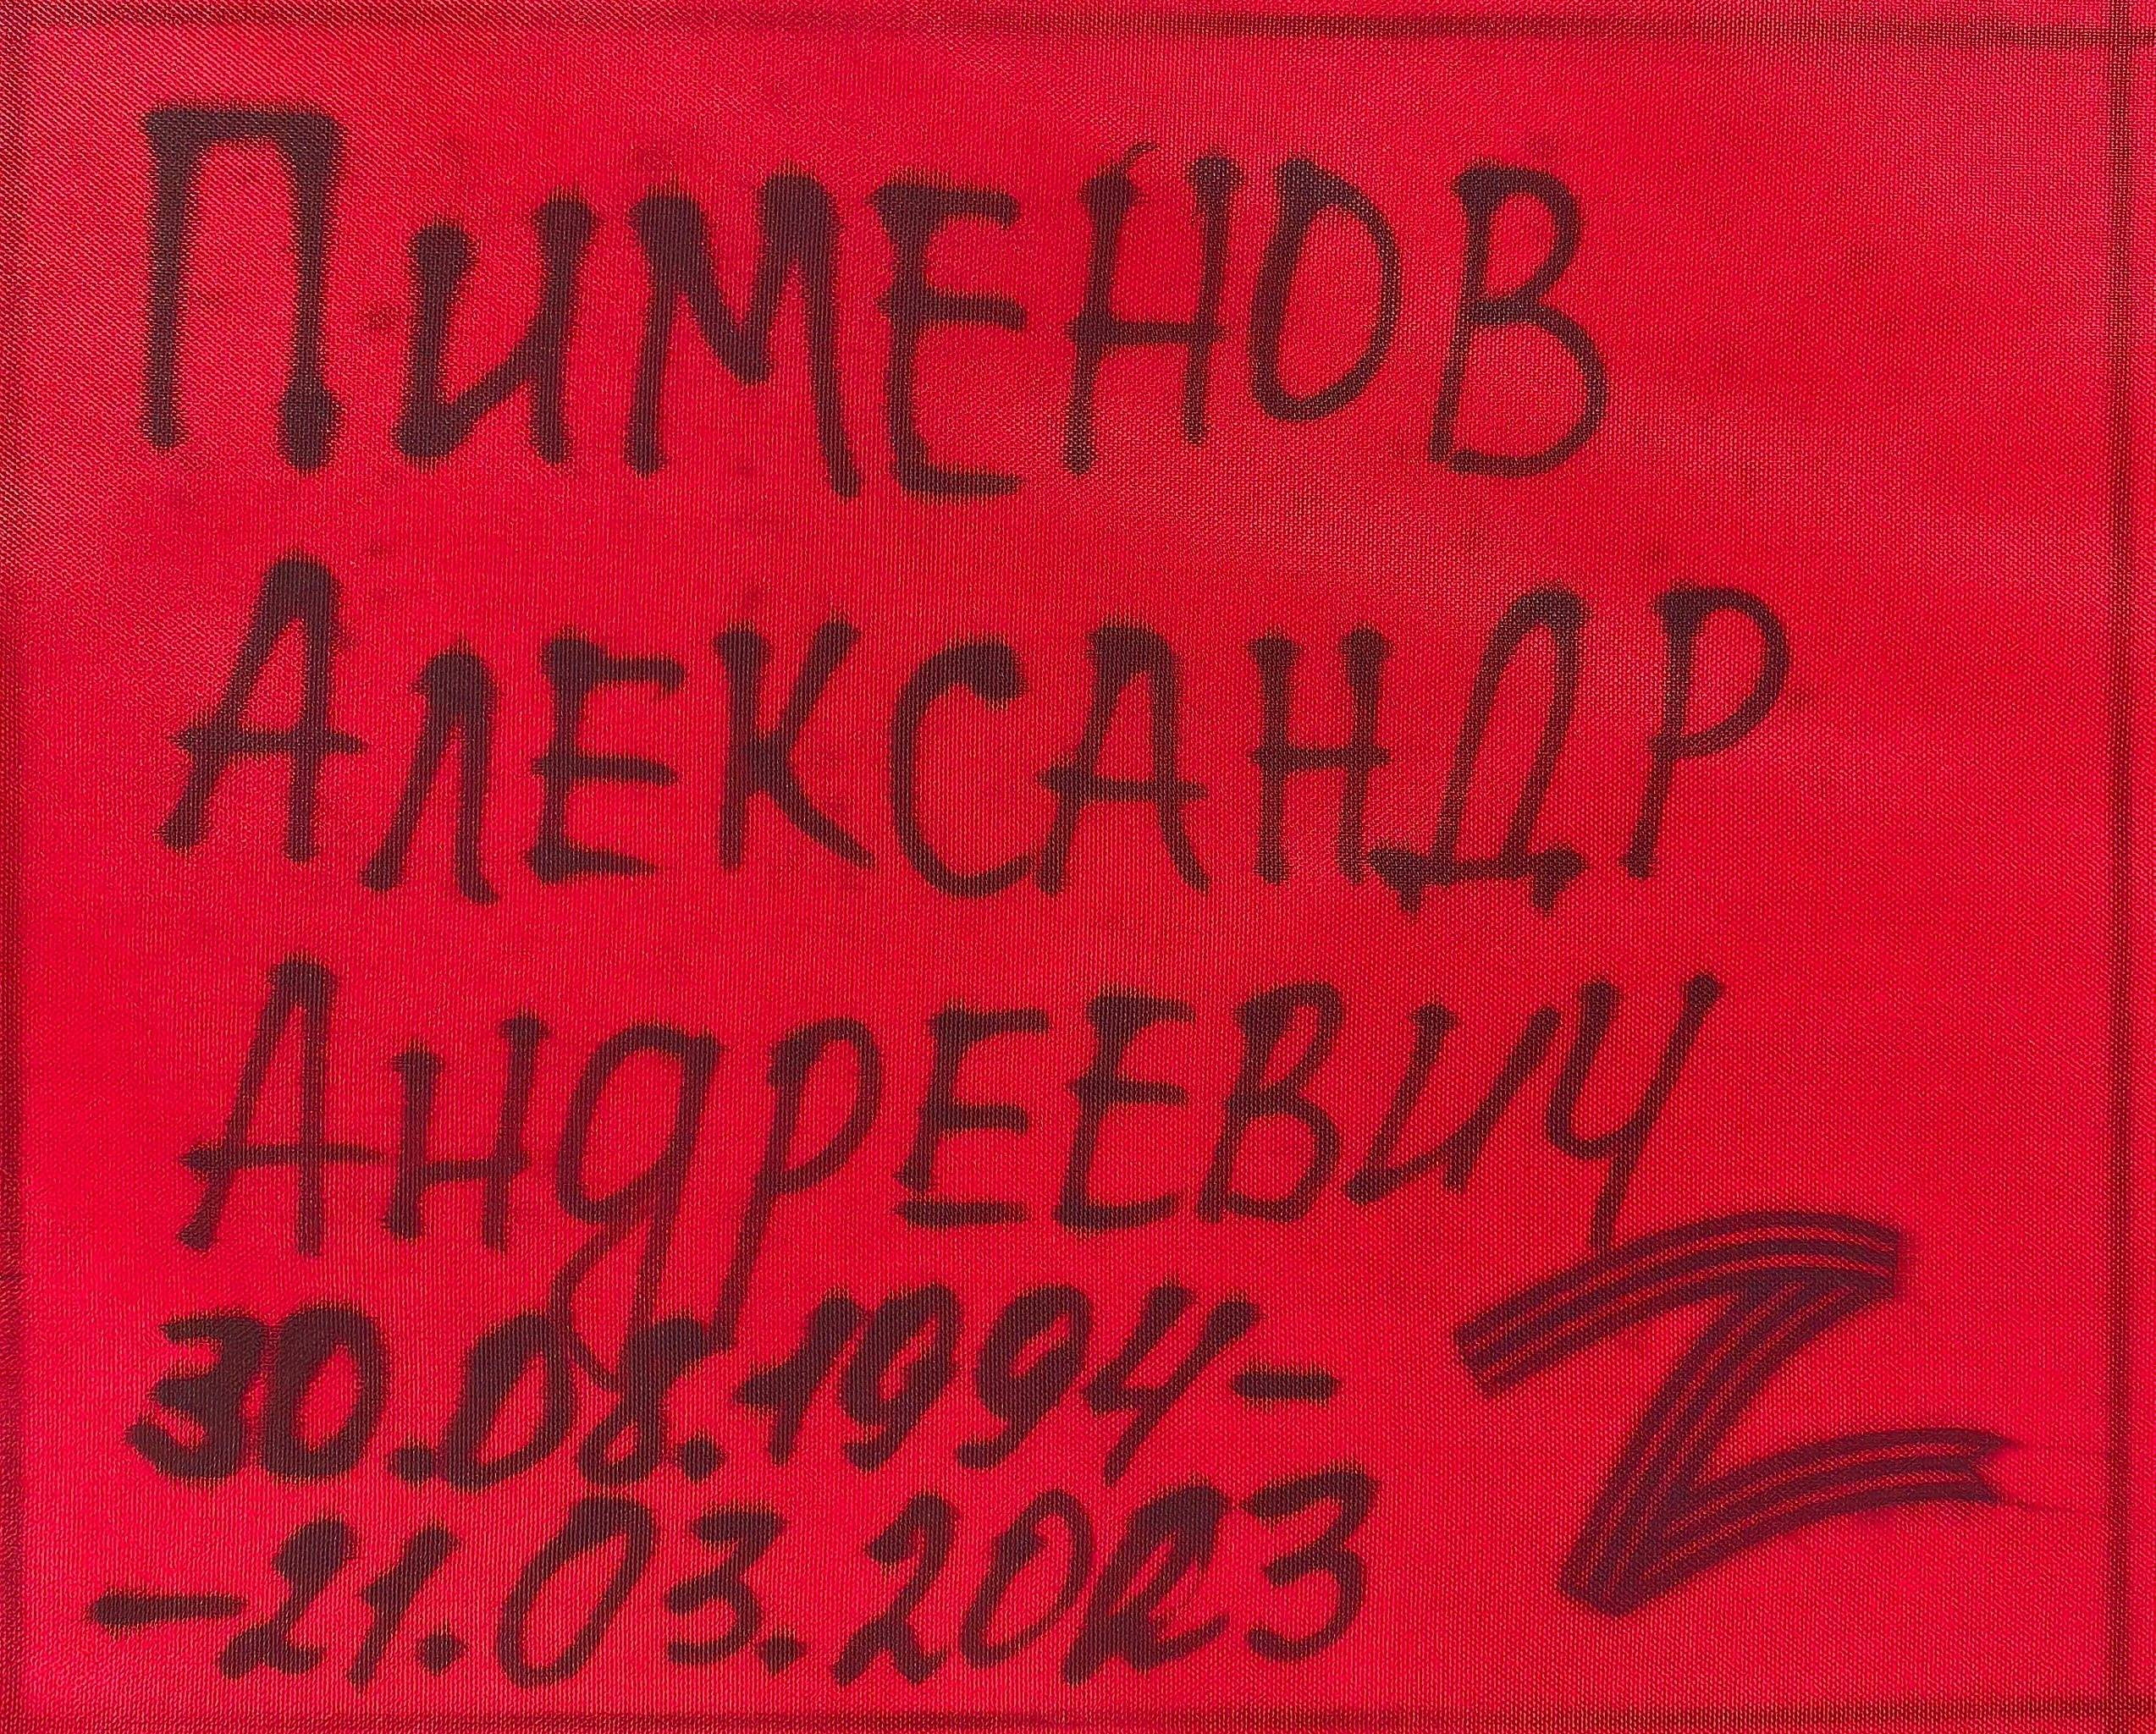 Пименов
Александр
Андреевич
30.08.1994-
-21.03.2023
Z